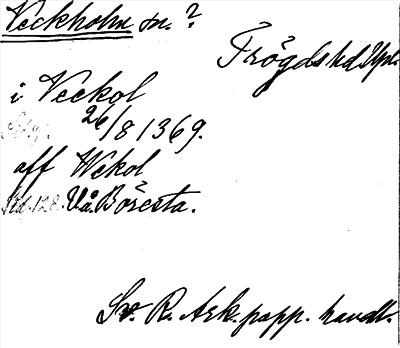 Veckholm sn.?
Trögds hd Upl.
i Veckol
26/8 1369.
aff Wekol
128. Vå. Böresta.
Sv. R. Ark. papp. handl.